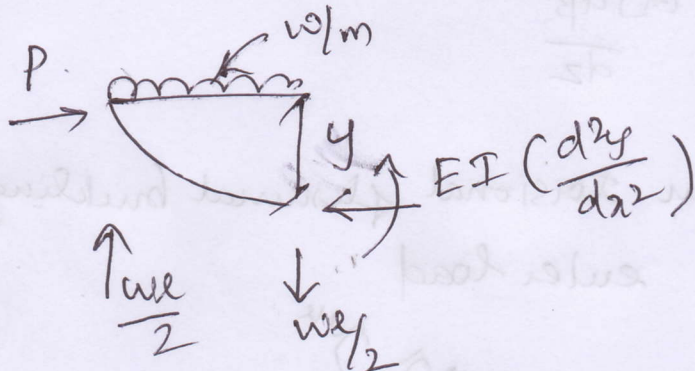 w/m
P.
y
EI (d²y/dx²)
wl/2
wl/2